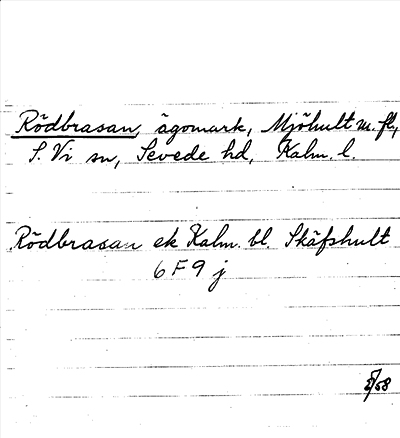 Rödbrasan, ägomark, Mjöhult m. fl.,
S. Vi sn, Sevede hd, Kalm. l.
Rödbrasan ek Kalm. bl. Skäfshult
6 F 9 j